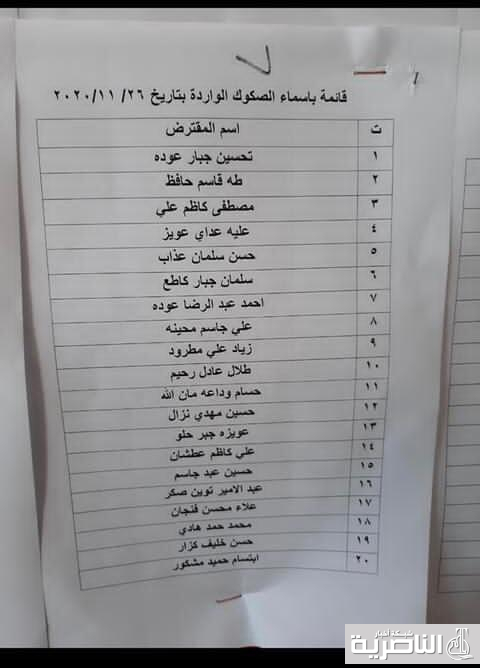 ٧
قائمة باسماء الصكوك الواردة بتاريخ ٢٦/ ١١/ ٢٠٢٠
ت اسم المقترض
١ تحسين جبار عوده
٢ طه قاسم حافظ
٣ مصطفى كاظم علي
٤ عليه عداي عويز
٥ حسن سلمان عذاب
٦ سلمان جبار كاطع
٧ احمد عبد الرضا عوده
٨ علي جاسم محينه
٩ زياد علي مطرود
١٠ طلال عادل رحيم
١١ حسام وداعه مان الله
١٢ حسين مهدي نزال
١٣ عويزه جبر حلو
١٤ علي كاظم عطشان
١٥ حسين عبد جاسم
١٦ عبد الامير توين صكر
١٧ علاء محسن فنجان
١٨ محمد حمد هادي
١٩ حسن خليف كزار
٢٠ ابتسام حميد مشكور
شبكة أخبار
الناصرية